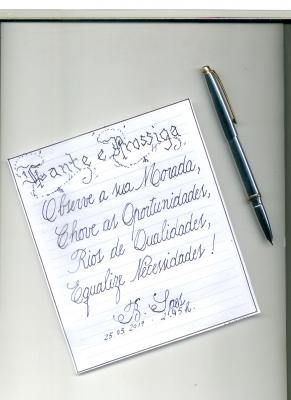 Tante e Prossiga
Observe a sua Morada,
Chove as Oportunidades,
Rios de Qualidades,
Equalize Necessidades!
25.05.2019